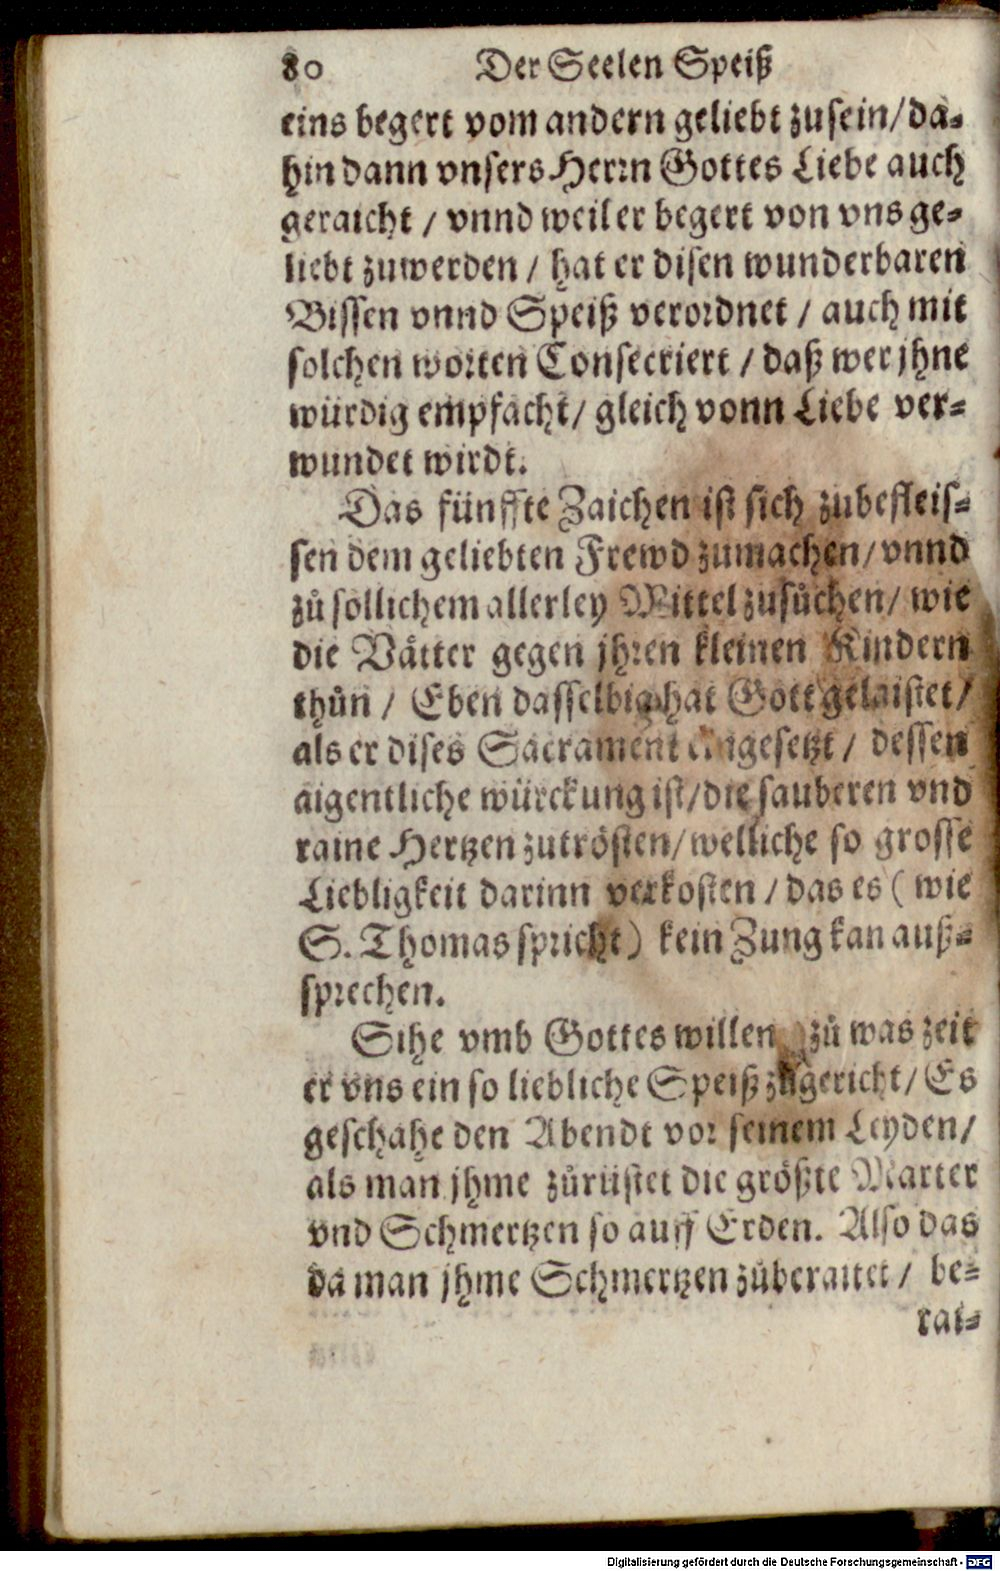 80 Der Seelen Speiß
eins begert vom andern geliebt zusein/da-
hin dann vnsers Herrn Gottes Liebe auch
geraicht / vnnd weil er begert von vns ge-
liebt zuwerden / hat er disen wunderbaren
Bissen vnnd Speiß verordnet / auch mit
solchen worten Consecriert / daß wer jhne
würdig empfacht/ gleich vonn Liebe ver-
wundet wirdt.
Das fünffte Zaichen ist sich zubefleis-
sen dem geliebten Frewd zumachen/vnnd
zů sollichem allerley Mittel zusůchen/ wie
die Vätter gegen jhren kleinen Kindern
thůn / Eben dasselbig hat Gott gelaistet/
als er dises Sacrament eingesetzt / dessen
aigentliche würckung ist/die sauberen vnd
raine Hertzen zutrösten/welliche so grosse
Liebligkeit darinn verkosten / das es ( wie
S. Thomas spricht) kein Zung kan auß-
sprechen.
Sihe vmb Gottes willen zů was zeit
er vns ein so liebliche Speiß zůgericht/ Es
geschahe den Abendt vor seinem Leyden/
als man jhme zůrüstet die größte Marter
vnd Schmertzen so auff Erden. Also das
da man jhme Schmertzen zůberaitet / be-
rai-
Digitalisierung gefördert durch die Deutsche Forschungsgemeinschaft - DFG